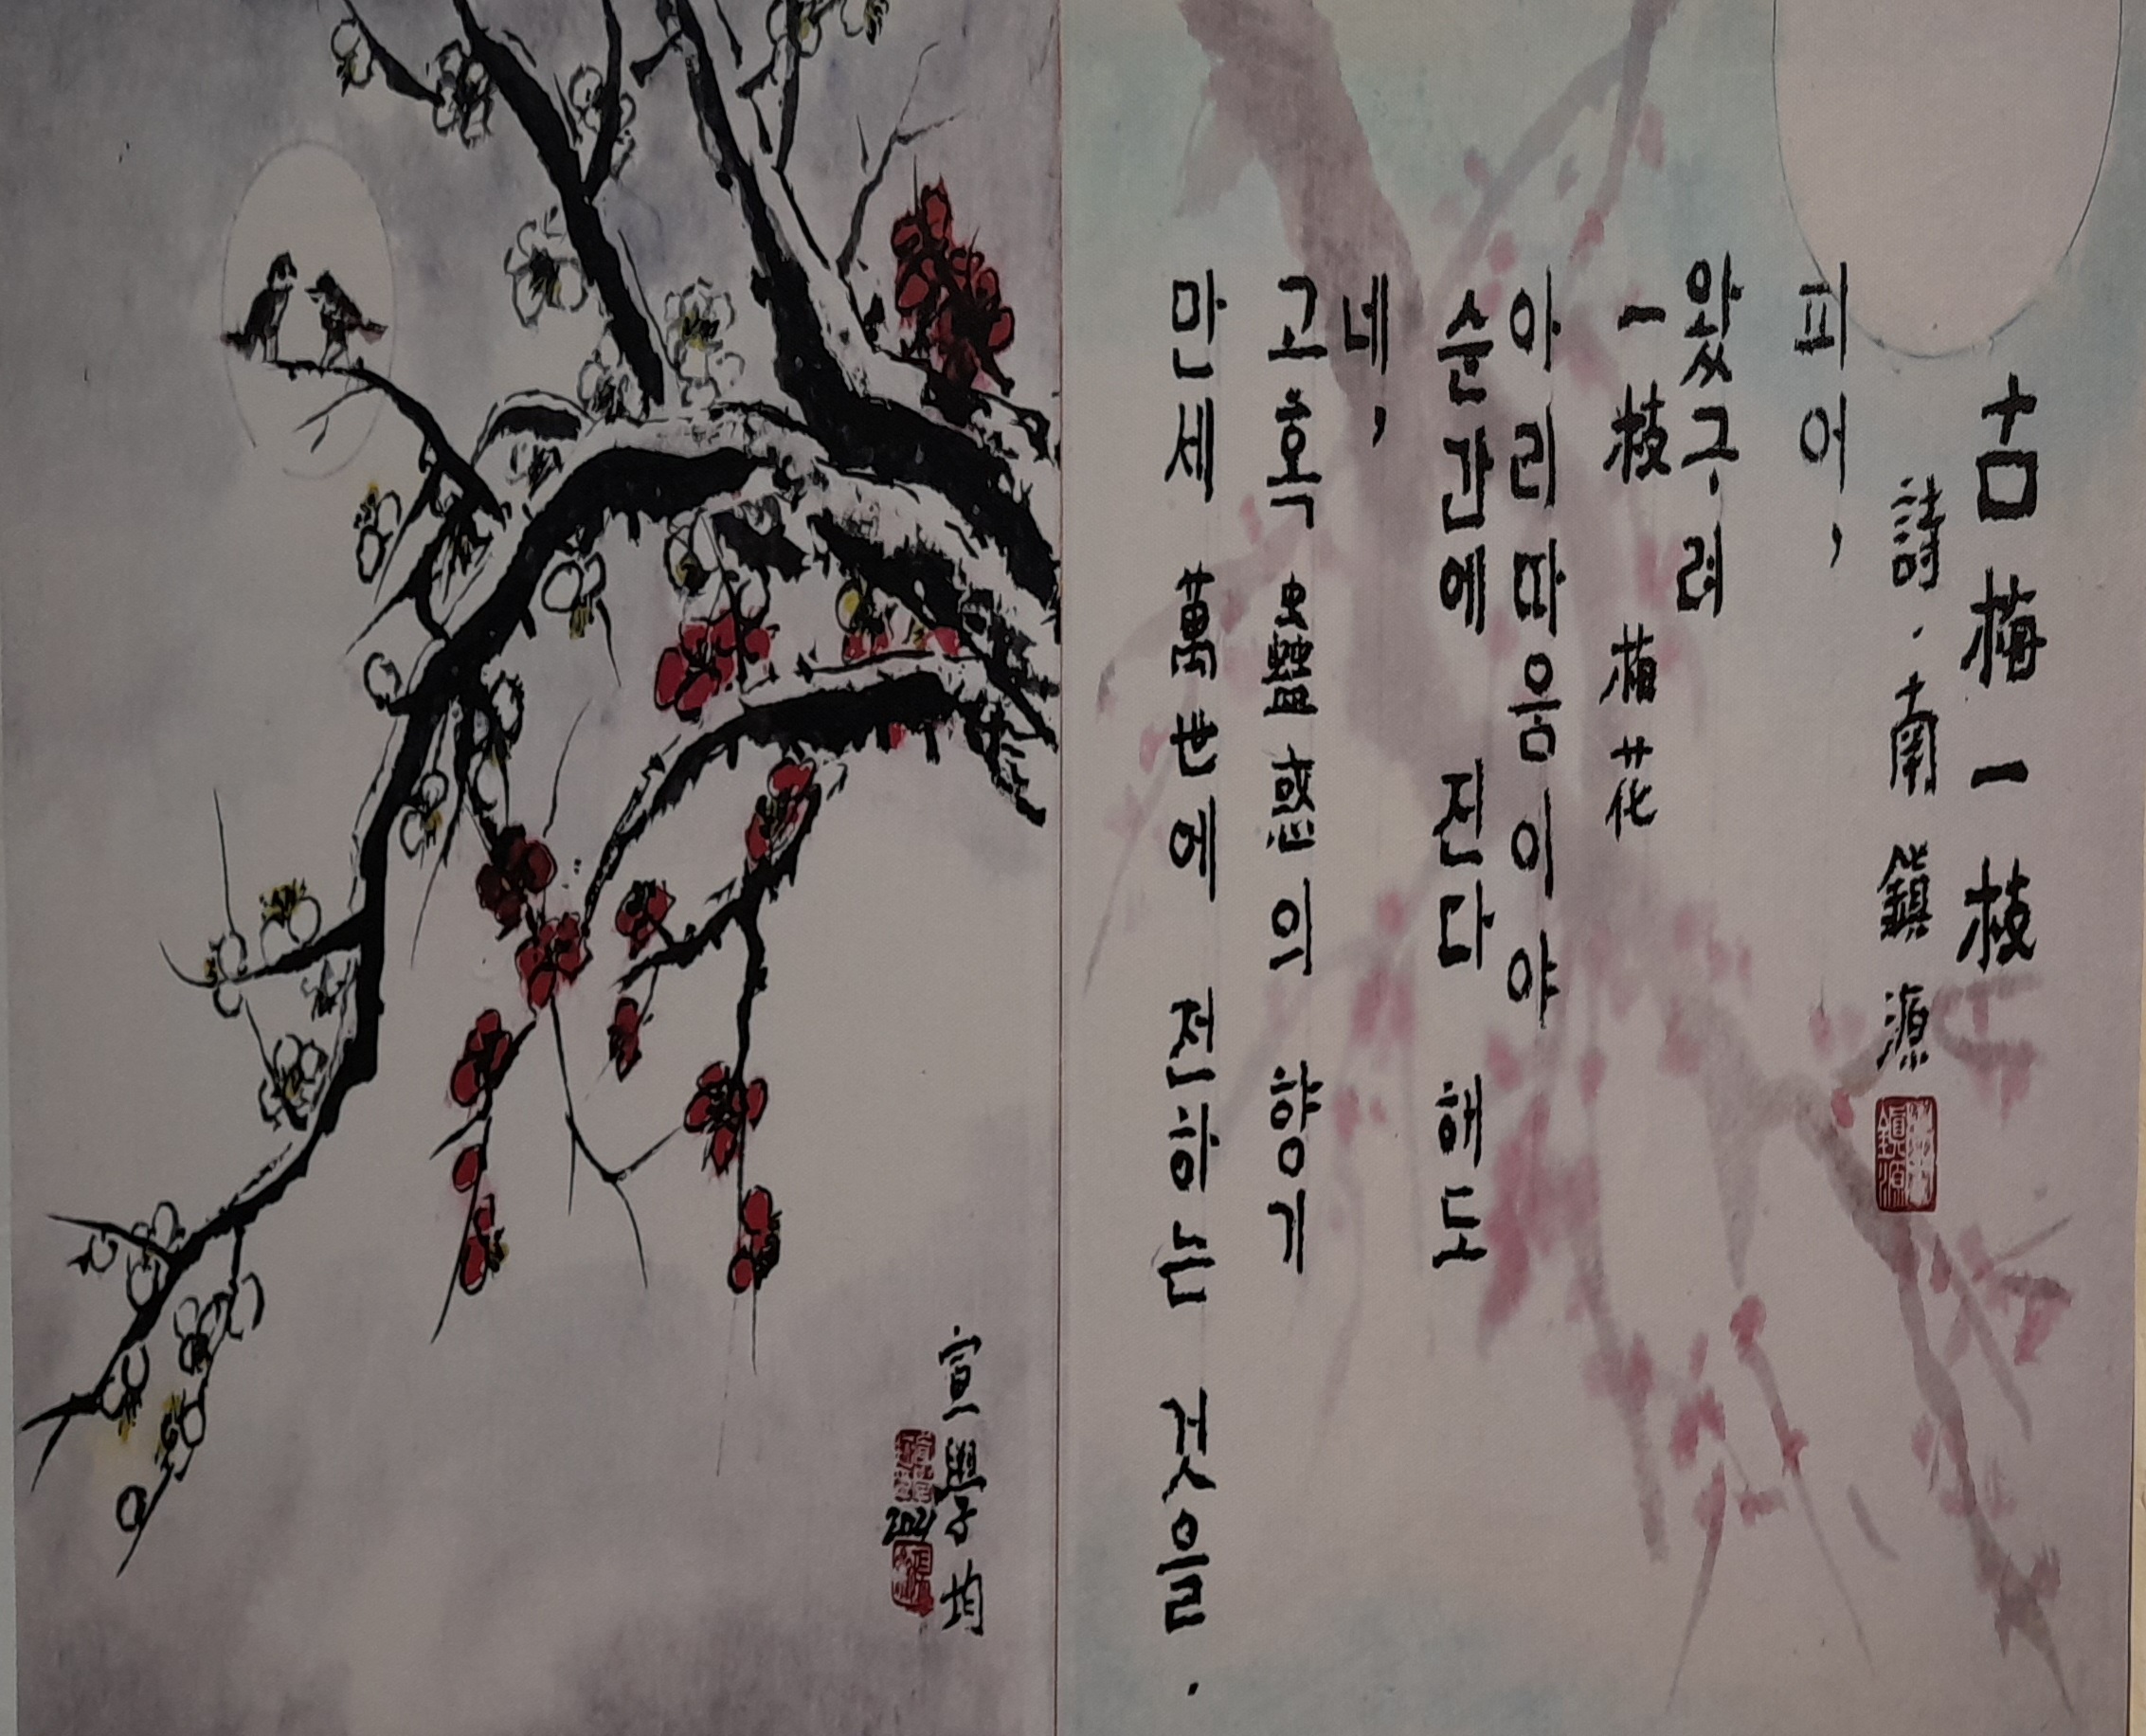 古梅一枝
詩·南鎭源
피어,
왔구려
一枝 梅花
아리따움이야
순간에 진다 해도
네,
고혹 蠱惑의 향기
만세 萬世에 전하는 것을.
宣學均
2021